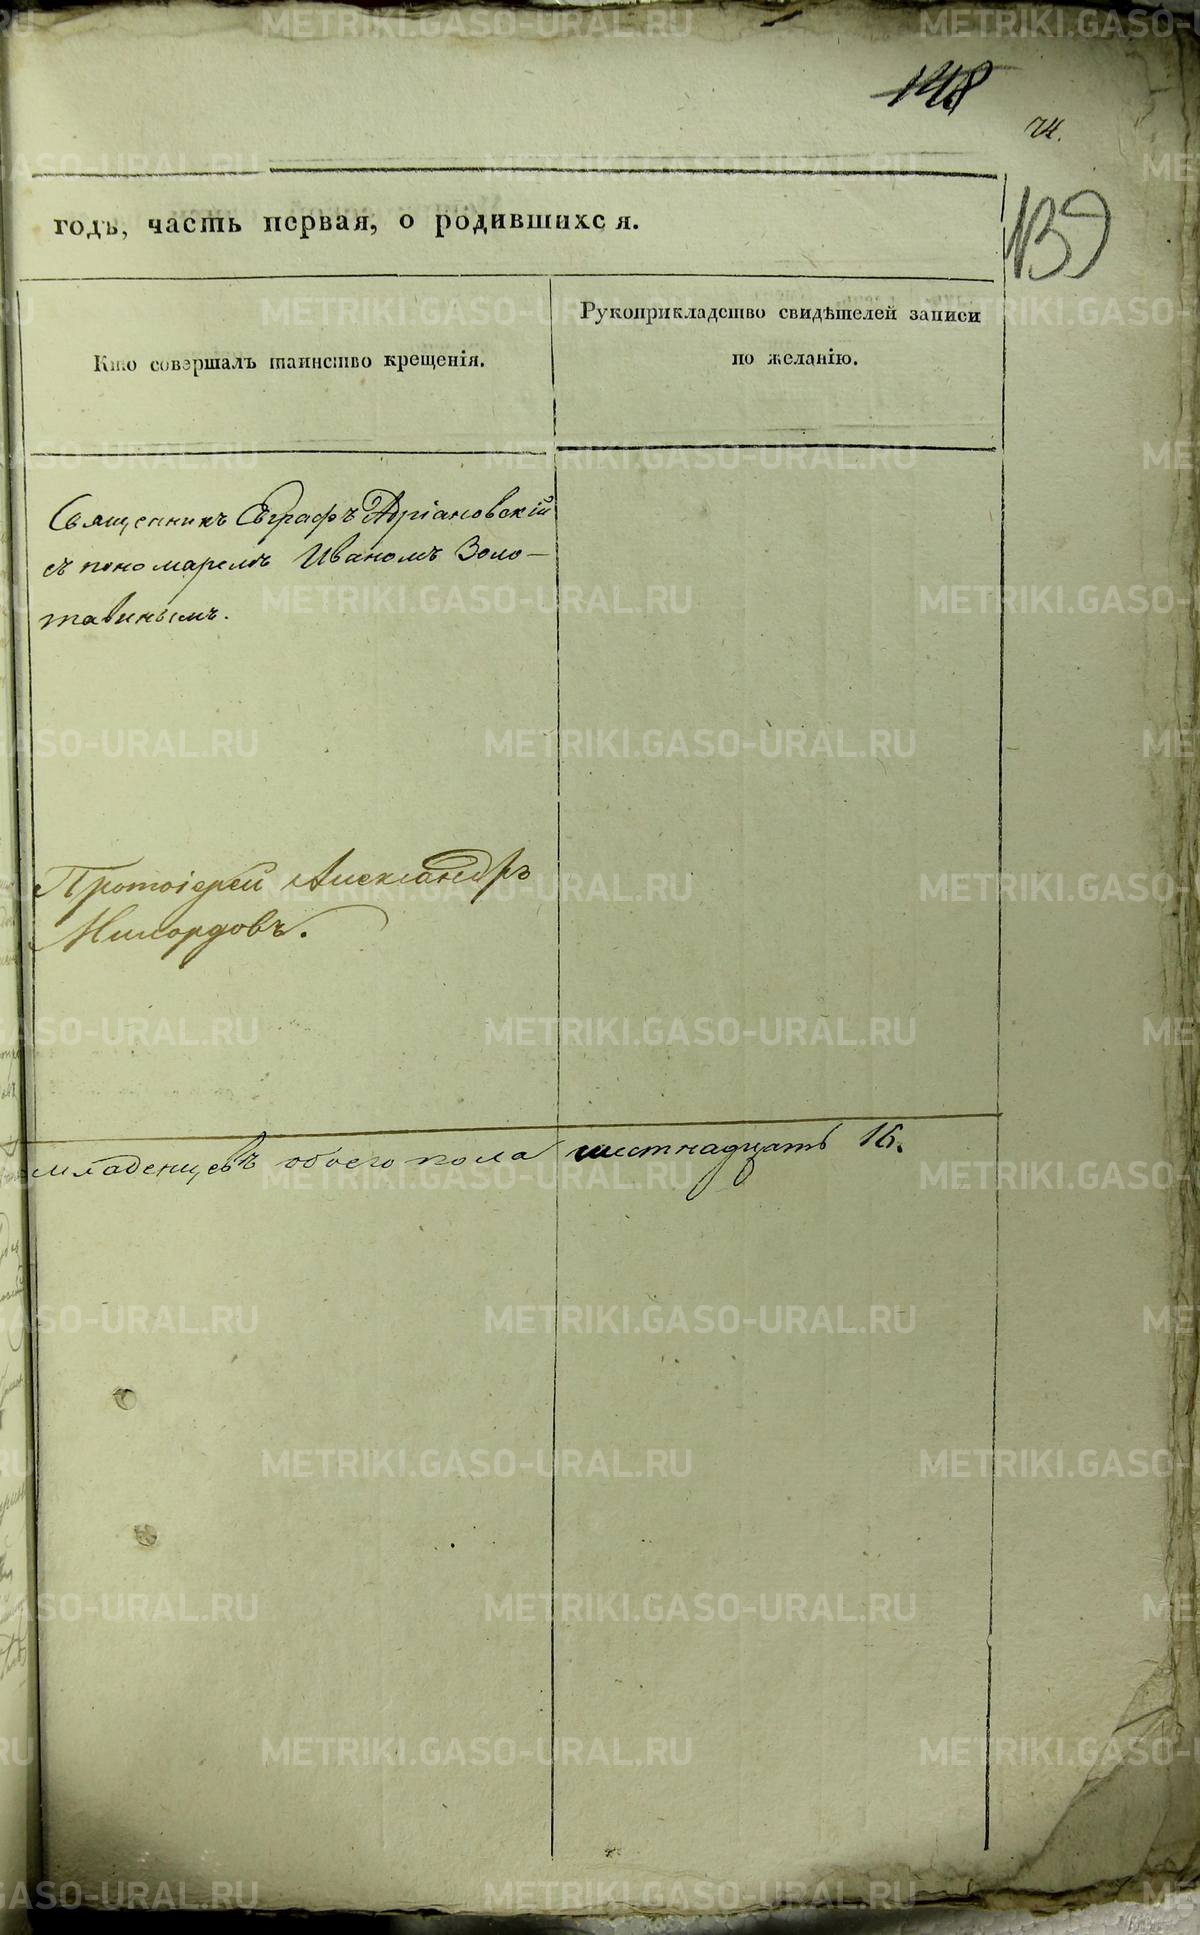 148
74.
139
годъ, часть первая, о родившихся.
Кто совершалъ таинство крещенія.
Рукоприкладство свидѣтелей записи
по желанію.
Священникъ Евграфъ Адріановскій
съ пономаремъ Иваномъ Золо-
тавинымъ.
Протоіерей Александръ
Милордовъ.
младенцевъ обоего пола шестнадцать 16.
METRIKI.GASO-URAL.RU